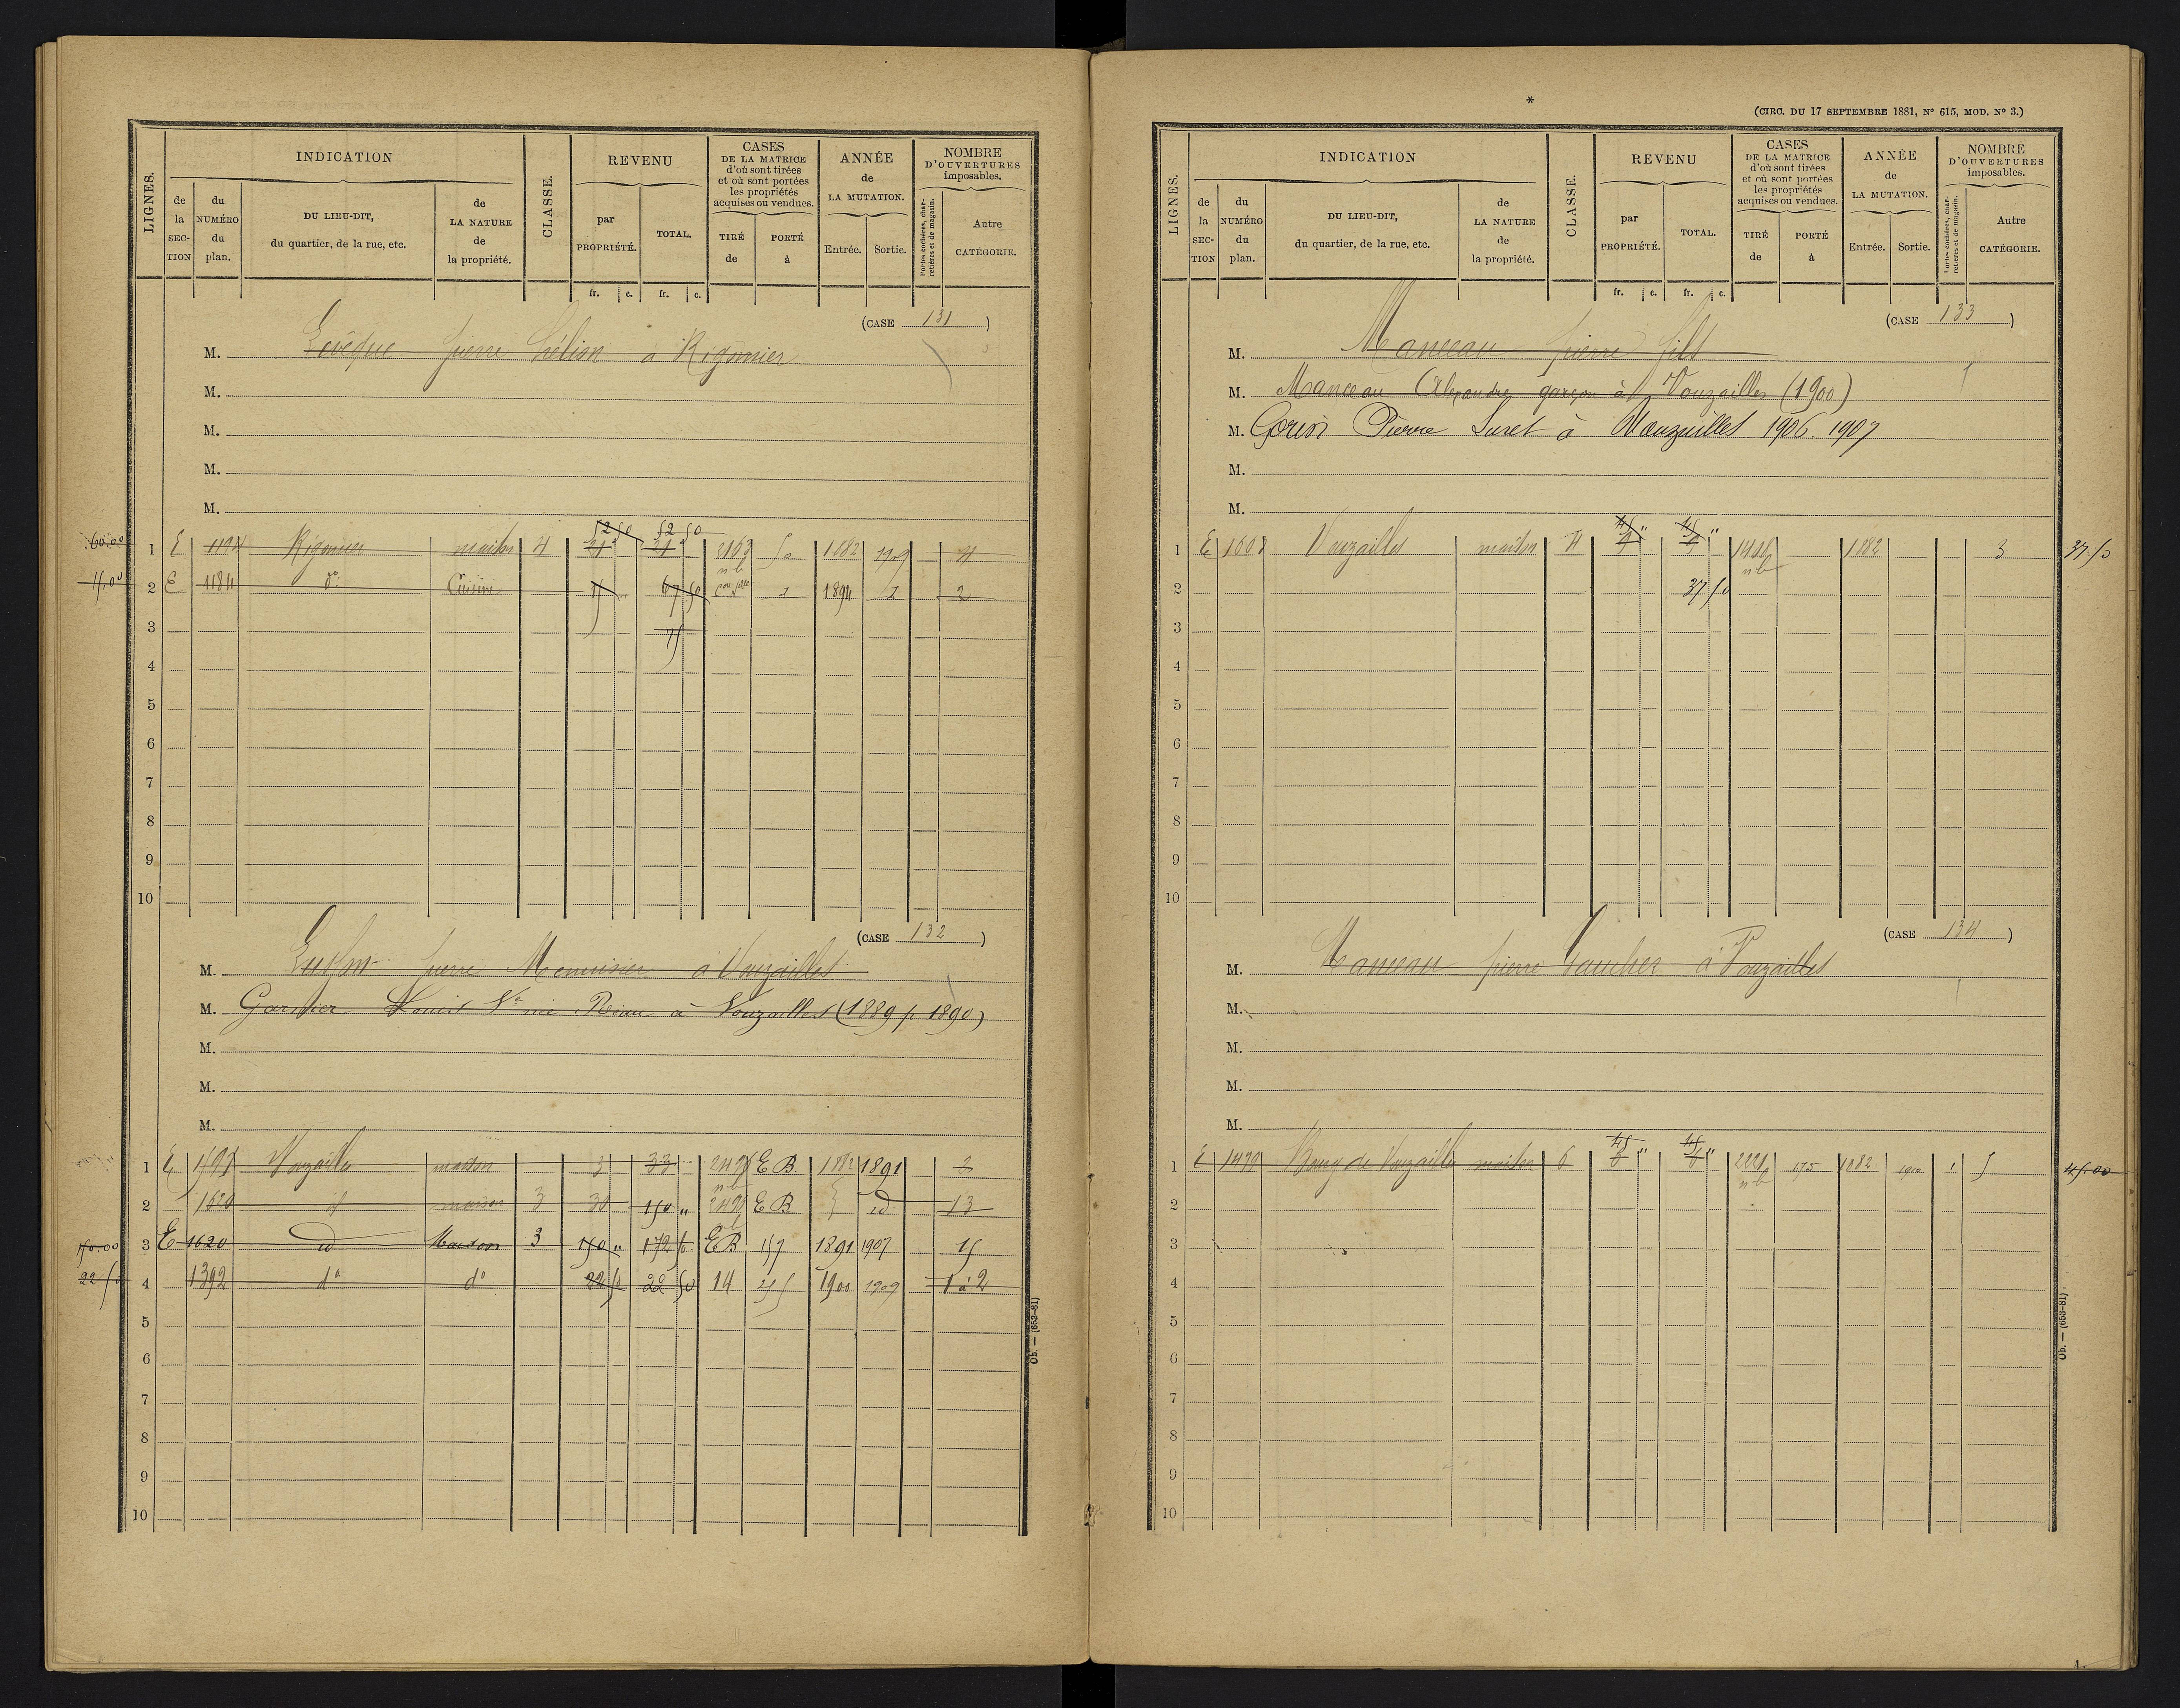 LIGNES.
INDICATION
de la SECTION
du NUMÉRO du plan.
DU LIEU-DIT, du quartier, de la rue, etc.
de LA NATURE de la propriété.
CLASSE.
REVENU
par PROPRIÉTÉ.
TOTAL.
fr. c. fr. c.
CASES DE LA MATRICE d'où sont tirées et où sont portées les propriétés acquises ou vendues.
TIRÉ de
PORTÉ à
ANNÉE de LA MUTATION.
Entrée. Sortie.
NOMBRE D'OUVERTURES imposables.
Portes cochères, charretières et de magasin.
Autre CATÉGORIE.
(CASE 131)
M. Levêque pierre hélion a Rigomier
M.
M.
M.
M.
52 50 52 50
60.00 1 E 1194 Rigomier maison 4 21 21 2163 1882 1909 4
15.00 2 E 1184 do Cuisine 15 67 50 1894 2
3 75
4
5
6
7
8
9
10
(CASE 132)
M. pierre Menuisier à Vouzailles
M. Garnier Louis Ve née à Vouzailles (1889 p 1890)
M.
M.
M.
1 E Vouzailles maison 3 33 EB 1882 1891 2
2 1620 id maison 3 30 150 " EB id 13
150.00 3 E 1620 id Maison 3 150 " 172 EB 157 1891 1907 15
22 50 4 1392 do do 22 50 22 50 14 1900 1909 1 à 2
5
6
7
8
9
10
Ob. — (653-81)
*
(CIRC. DU 17 SEPTEMBRE 1881, N° 615, MOD. N° 3.)
LIGNES.
INDICATION
de la SECTION
du NUMÉRO du plan.
DU LIEU-DIT, du quartier, de la rue, etc.
de LA NATURE de la propriété.
CLASSE.
REVENU
par PROPRIÉTÉ.
TOTAL.
fr. c. fr. c.
CASES DE LA MATRICE d'où sont tirées et où sont portées les propriétés acquises ou vendues.
TIRÉ de
PORTÉ à
ANNÉE de LA MUTATION.
Entrée. Sortie.
NOMBRE D'OUVERTURES imposables.
Portes cochères, charretières et de magasin.
Autre CATÉGORIE.
(CASE 133)
M. Manceau pierre fils
M. Manceau Alexandre garçon à Vouzailles (1900)
M. Pierre Suret à Vouzailles 1906 1907
M.
M.
45 " 45 "
1 E Vouzailles maison 4 1882 3 37.50
2 37 50
3
4
5
6
7
8
9
10
(CASE 134)
M. Manceau pierre à Vouzailles
M.
M.
M.
M.
45 " 45 "
1 E Bourg de Vouzailles maison 6 6 6 175 1882 1900 1 5 45.00
2
3
4
5
6
7
8
9
10
Ob. — (653-81)